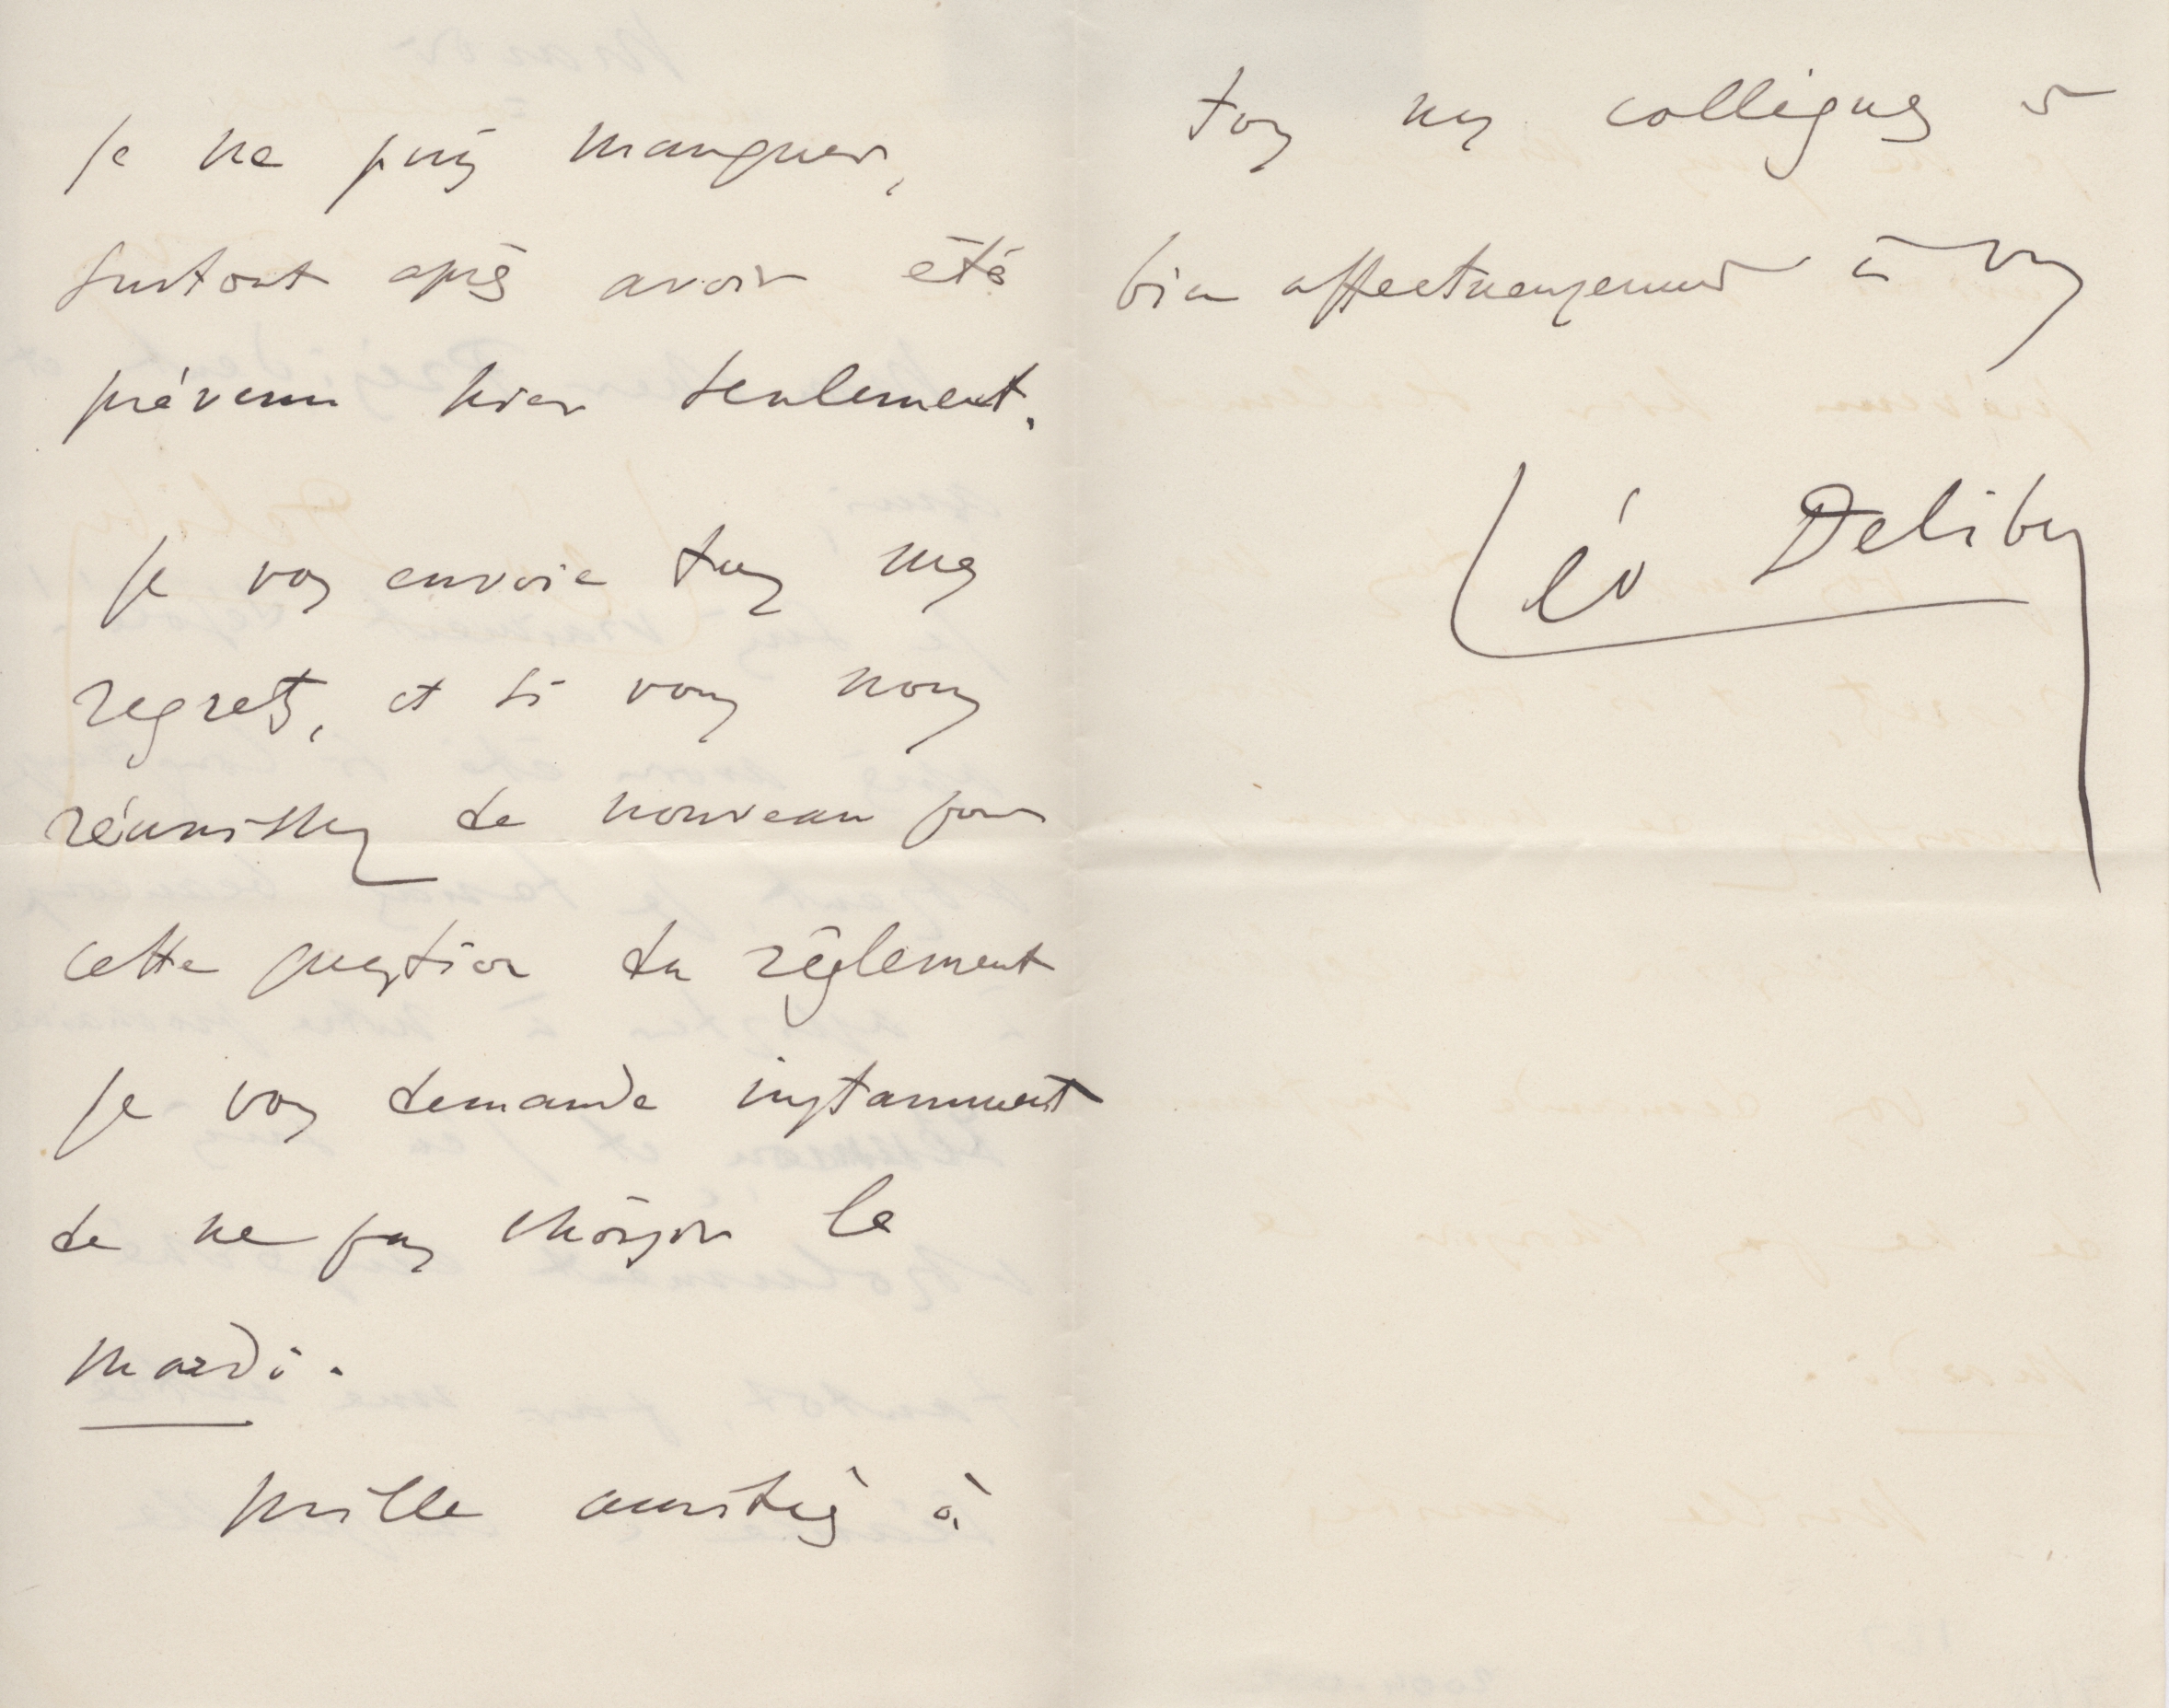 je ne puis manquer,
surtout après avoir été
prévenu hier seulement.
Je vous envoie tous mes
regrets, et si vous nous
réunissez de nouveau pour
cette question du règlement
je vous demande instamment
de ne pas choisir le
mardi.
Mille amitiés à
tous nos collègues et
bien affectueusement à vous
Léo Delibes